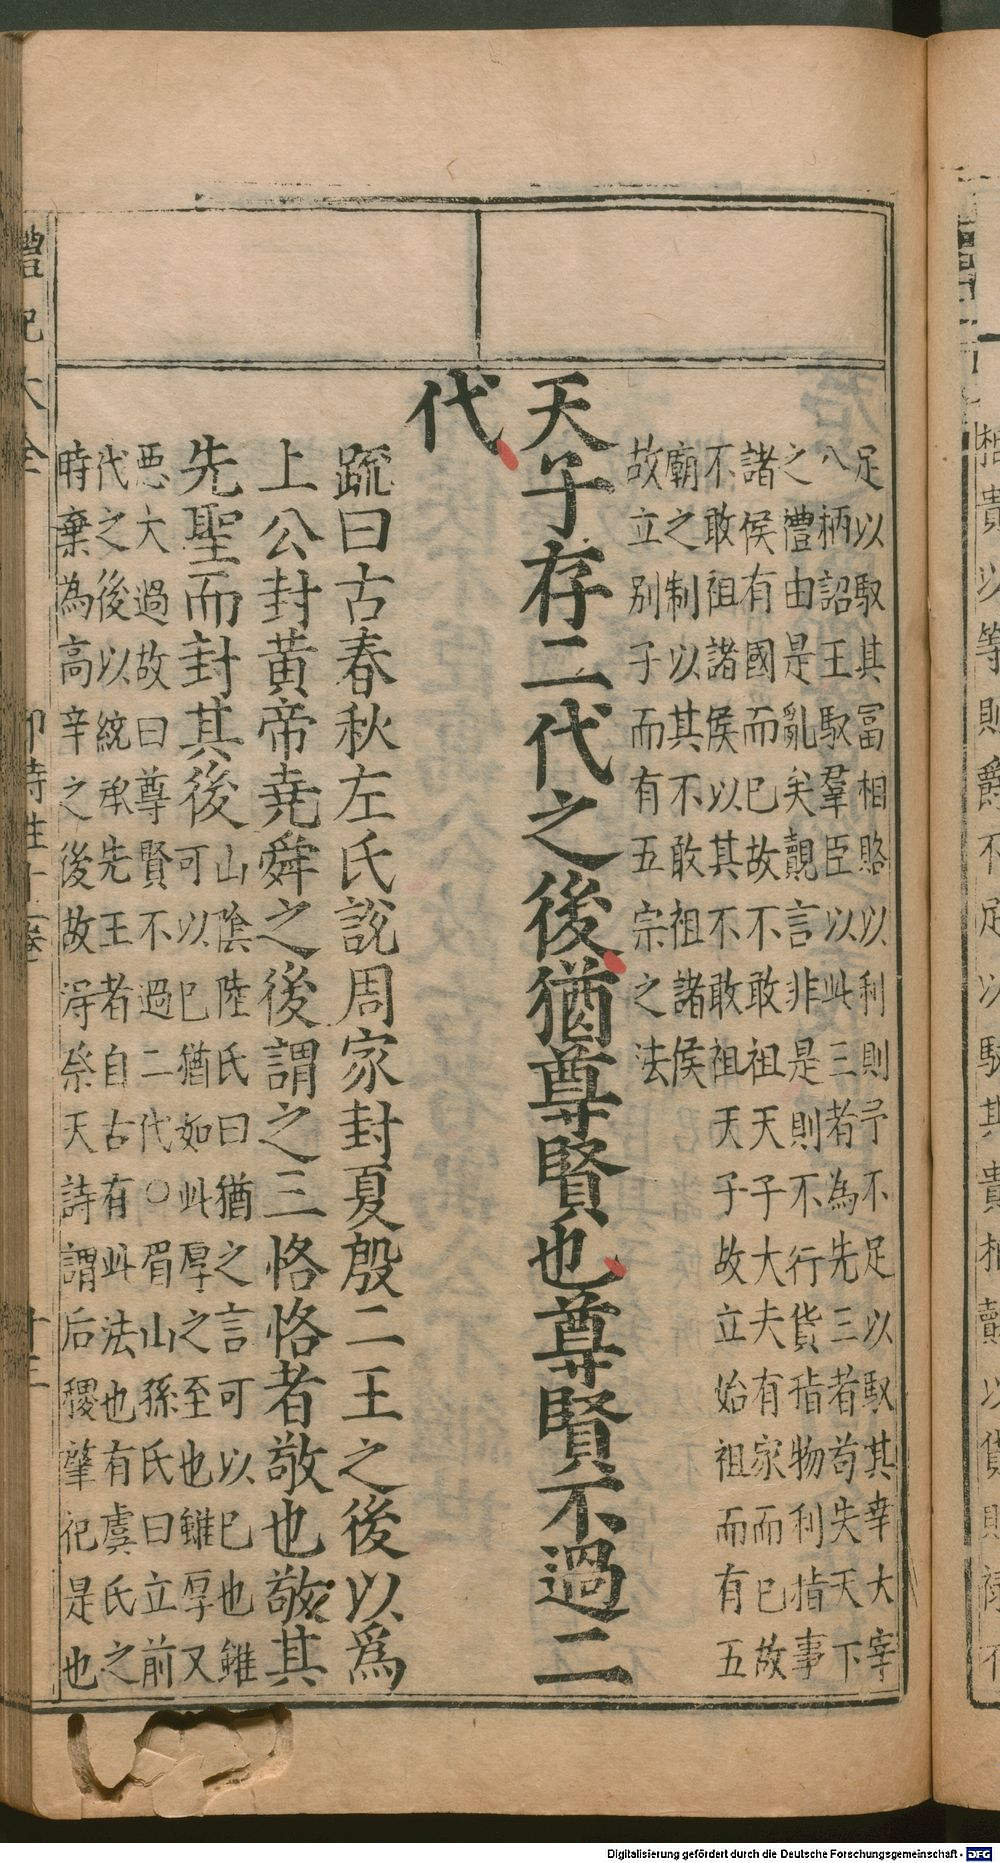 足以馭其富相賂以利則予不足以馭其幸大宰
八柄詔王馭羣臣以此三者為先三者苟失天下
之禮由是亂矣覿言非是則不行貨指物利指事
諸侯有國而已故不敢祖天子大夫有家而已故
不敢祖諸侯以其不敢祖天子故立始祖而有五
廟之制以其不敢祖諸侯
故立別子而有五宗之法
天子存二代之後猶尊賢也尊賢不過二
代
䟽曰古春秋左氏說周家封夏殷二王之後以爲
上公封黃帝堯舜之後謂之三恪恪者敬也敬其
先聖而封其後
山陰陸氏曰猶之言可以已也雖
可以已猶如此厚之至也雖厚又
惡大過故曰尊賢不過二代○眉山孫氏曰立前
代之後以統承先王者自古有此法也有虞氏之
時棄為高辛之後故得祭天詩謂后稷肇祀是也
禮記大全
郊特牲十一卷
十三
相貴以等則爵不足以馭其貴相賣以貨則祿不
Digitalisierung gefördert durch die Deutsche Forschungsgemeinschaft - DFG